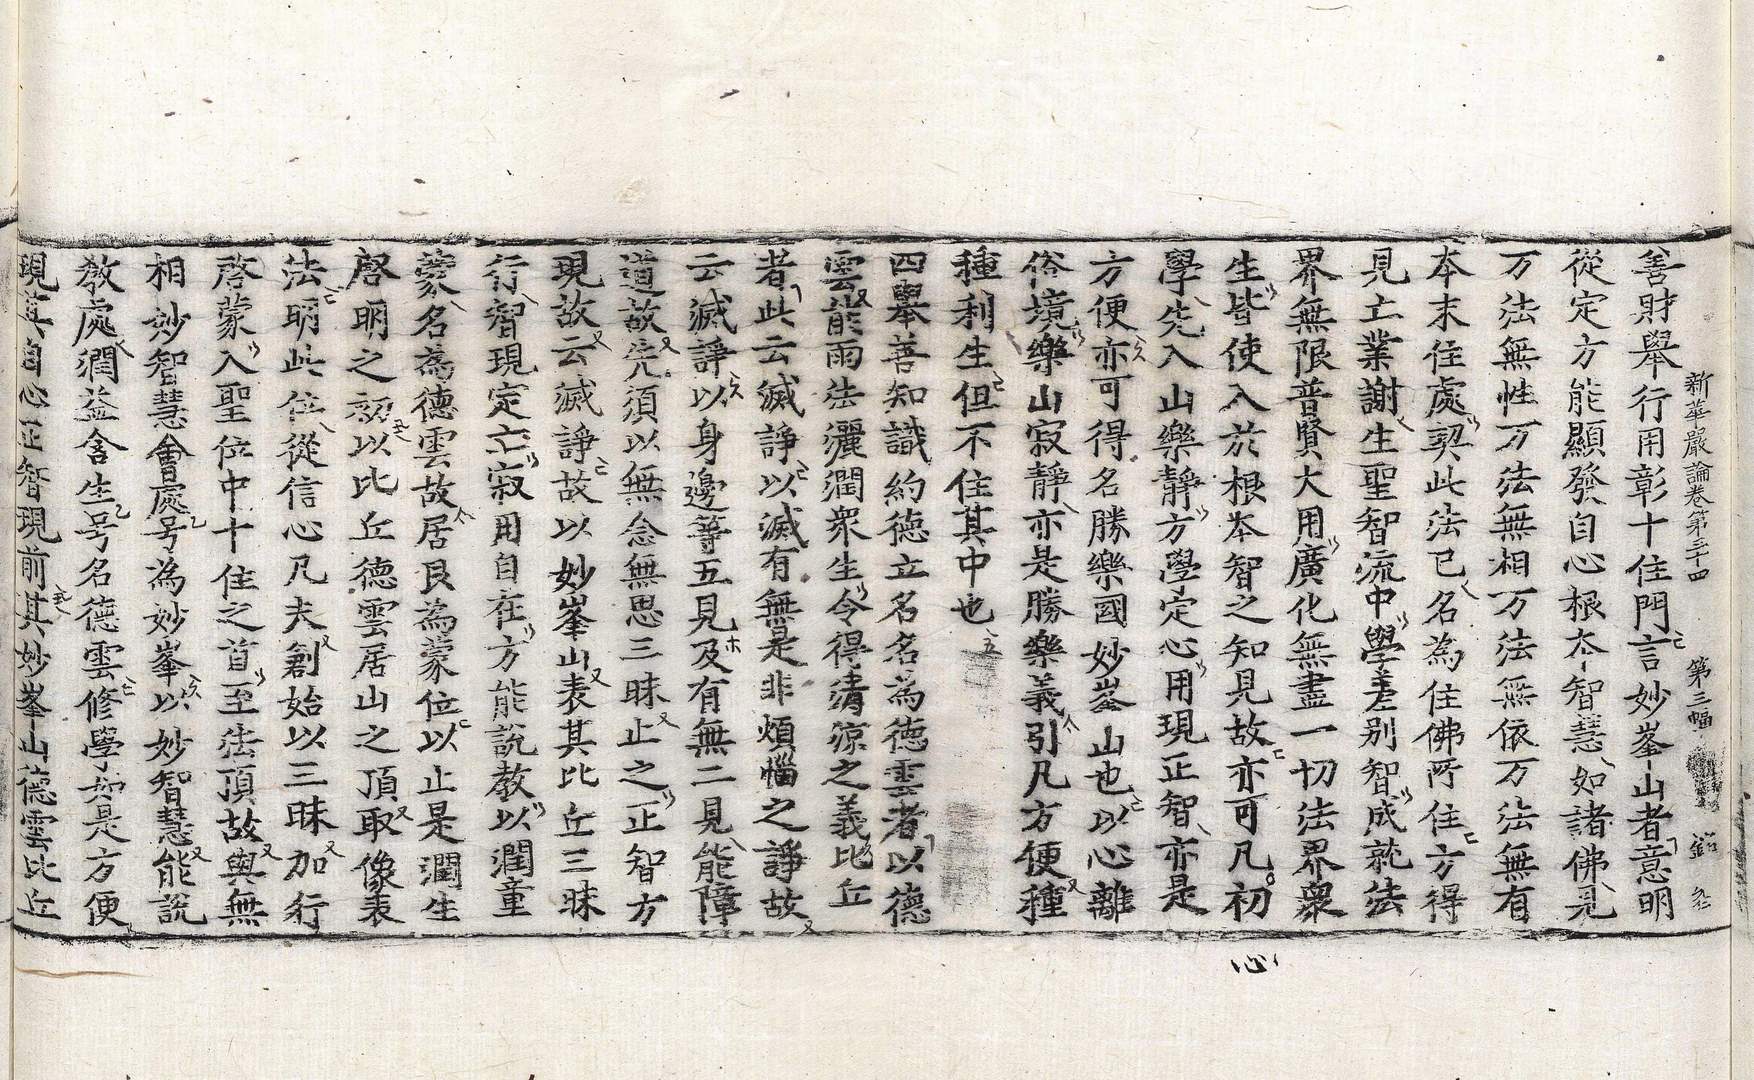 新華嚴論卷第三十四　第三幅
善財舉行用彰十住門言妙峯山者意明
從定方能顯發自心根本智慧如諸佛見
万法無性万法無相万法無依万法無有
本末住處契此法已名為住佛所住方得
見亡業謝生聖智流中學差别智成就法
界無限普賢大用廣化無盡一切法界衆
生皆使入於根本智之知見故亦可凡初
心
學先入山樂靜方學定心用現正智亦是
方便亦可得名勝樂國妙峯山也以心離
俗境樂山寂靜亦是勝樂義引凡方便種
種利生但不住其中也
四舉善知識約德立名名為德雲者以德
雲能雨法灑潤衆生令得清涼之義比丘
者此云滅諍以滅有無是非煩惱之諍故
云滅諍以身邊等五見及有無二見能障
道故先須以無念無思三昧止之正智方
現故云滅諍故以妙峯山表其比丘三昧
行智現定亡寂用自在方能說教以潤童
蒙名為德雲故居艮為蒙位以止是潤生
啓明之初以比丘德雲居山之頂取像表
法明此位從信心凡夫創始以三昧加行
啓蒙入聖位中十住之首至法頂故與無
相妙智慧會處号為妙峯以妙智慧能說
教處潤益含生号名德雲修學如是方便
現其自心正智現前其妙峯山德雲比丘